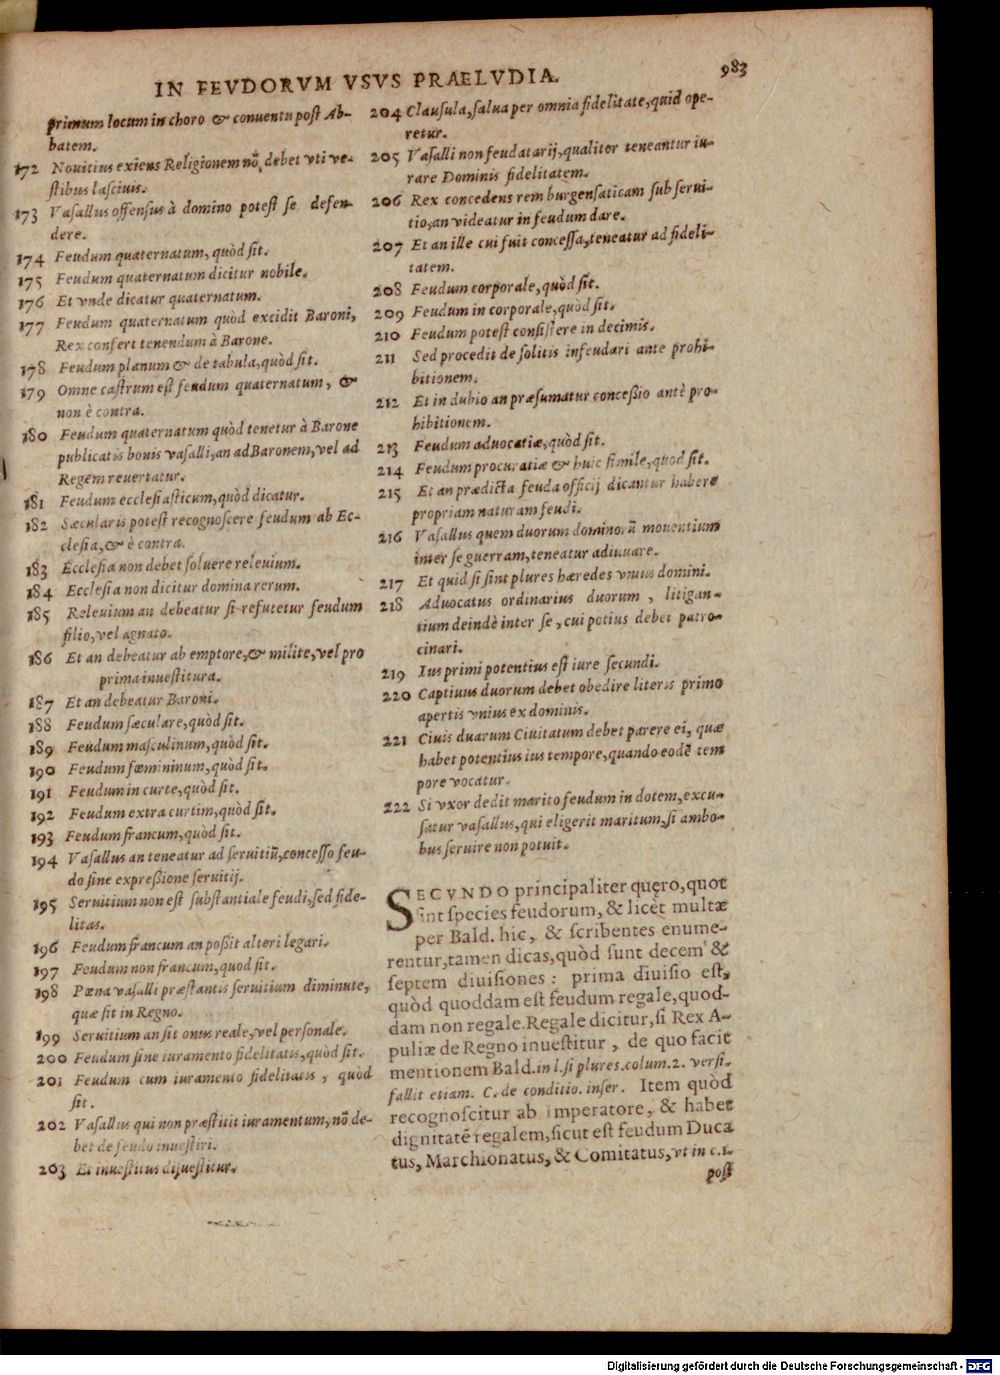 IN FEVDORVM VSVS PRAELVDIA. 983
primum locum in choro & conuentu post Ab-
batem.
172 Nouitius exiens Religionem nō, debet vti ve-
stibus lasciuis.
173 Vasallus offensus à domino potest se defen-
dere.
174 Feudum quaternatum, quòd sit.
175 Feudum quaternatum dicitur nobile.
176 Et vnde dicatur quaternatum.
177 Feudum quaternatum quòd excidit Baroni,
Rex confert tenendum à Barone.
178 Feudum planum & de tabula, quòd sit.
179 Omne castrum est feudum quaternatum, &
non è contra.
180 Feudum quaternatum quòd tenetur à Barone
publicatis bonis vasalli, an ad Baronem, vel ad
Regem reuertatur.
181 Feudum ecclesiasticum, quòd dicatur.
182 Sæcularis potest recognoscere feudum ab Ec-
clesia, & è contra.
183 Ecclesia non debet soluere releuium.
184 Ecclesia non dicitur domina rerum.
185 Releuium an debeatur si refutetur feudum
filio, vel agnato.
186 Et an debeatur ab emptore, & milite, vel pro
prima inuestitura.
187 Et an debeatur Baroni.
188 Feudum sæculare, quòd sit.
189 Feudum masculinum, quòd sit.
190 Feudum fœmininum, quòd sit.
191 Feudum in curte, quòd sit.
192 Feudum extra curtim, quòd sit.
193 Feudum francum, quòd sit.
194 Vasallus an teneatur ad seruitiū, concesso feu-
do sine expreßione seruitij.
195 Seruitium non est substantiale feudi, sed fide-
litas.
196 Feudum francum an poßit alteri legari.
197 Feudum non francum, quod sit.
198 Pœna vasalli præstantis seruitium diminute,
quæ sit in Regno.
199 Seruitium an sit onus reale, vel personale.
200 Feudum sine iuramento fidelitatis, quòd sit.
201 Feudum cum iuramento fidelitatis, quòd
sit.
202 Vasallus qui non præstitit iuramentum, nō de-
bet de feudo inuestiri.
203 Et inuestitus disuestitur.
204 Clausula, salua per omnia fidelitate, quid ope-
retur.
205 Vasalli non feudatarij, qualiter teneantur iu-
rare Dominis fidelitatem.
206 Rex concedens rem burgensaticam sub serui-
tio, an videatur in feudum dare.
207 Et an ille cui fuit concessa, teneatur ad fideli-
tatem.
208 Feudum corporale, quòd sit.
209 Feudum in corporale, quòd sit.
210 Feudum potest consistere in decimis.
211 Sed procedit de solitis infeudari ante prohi-
bitionem.
212 Et in dubio an præsumatur conceßio antè pro-
hibitionem.
213 Feudum aduocatiæ, quòd sit.
214 Feudum procuratiæ & huic simile, quod sit.
215 Et an prædicta feuda officij dicantur habere
propriam naturam feudi.
216 Vasallus quem duorum dominorū mouentium
inter se guerram, teneatur adiuuare.
217 Et quid si sint plures hæredes vnius domini.
218 Aduocatus ordinarius duorum, litigan-
tium deindè inter se, cui potius debet patro-
cinari.
219 Ius primi potentius est iure secundi.
220 Captiuus duorum debet obedire literis primo
apertis vnius ex dominis.
221 Ciuis duarum Ciuitatum debet parere ei, quæ
habet potentius ius tempore, quando eodē tem
pore vocatur.
222 Si vxor dedit marito feudum in dotem, excu-
satur vasallus, qui eligerit maritum, si ambo-
bus seruire non potuit.
SECVNDO principaliter quęro, quot
sint species feudorum, & licèt multæ
per Bald. hic, & scribentes enume-
rentur, tamen dicas, quòd sunt decem &
septem diuisiones: prima diuisio est,
quòd quoddam est feudum regale, quod-
dam non regale. Regale dicitur, si Rex A-
puliæ de Regno inuestitur, de quo facit
mentionem Bald. in l. si plures. colum. 2. versi.
fallit etiam. C. de conditio. inser. Item quòd
recognoscitur ab Imperatore, & habet
dignitatē regalem, sicut est feudum Duca
tus, Marchionatus, & Comitatus, vt in c. 1.
post
Digitalisierung gefördert durch die Deutsche Forschungsgemeinschaft - DFG